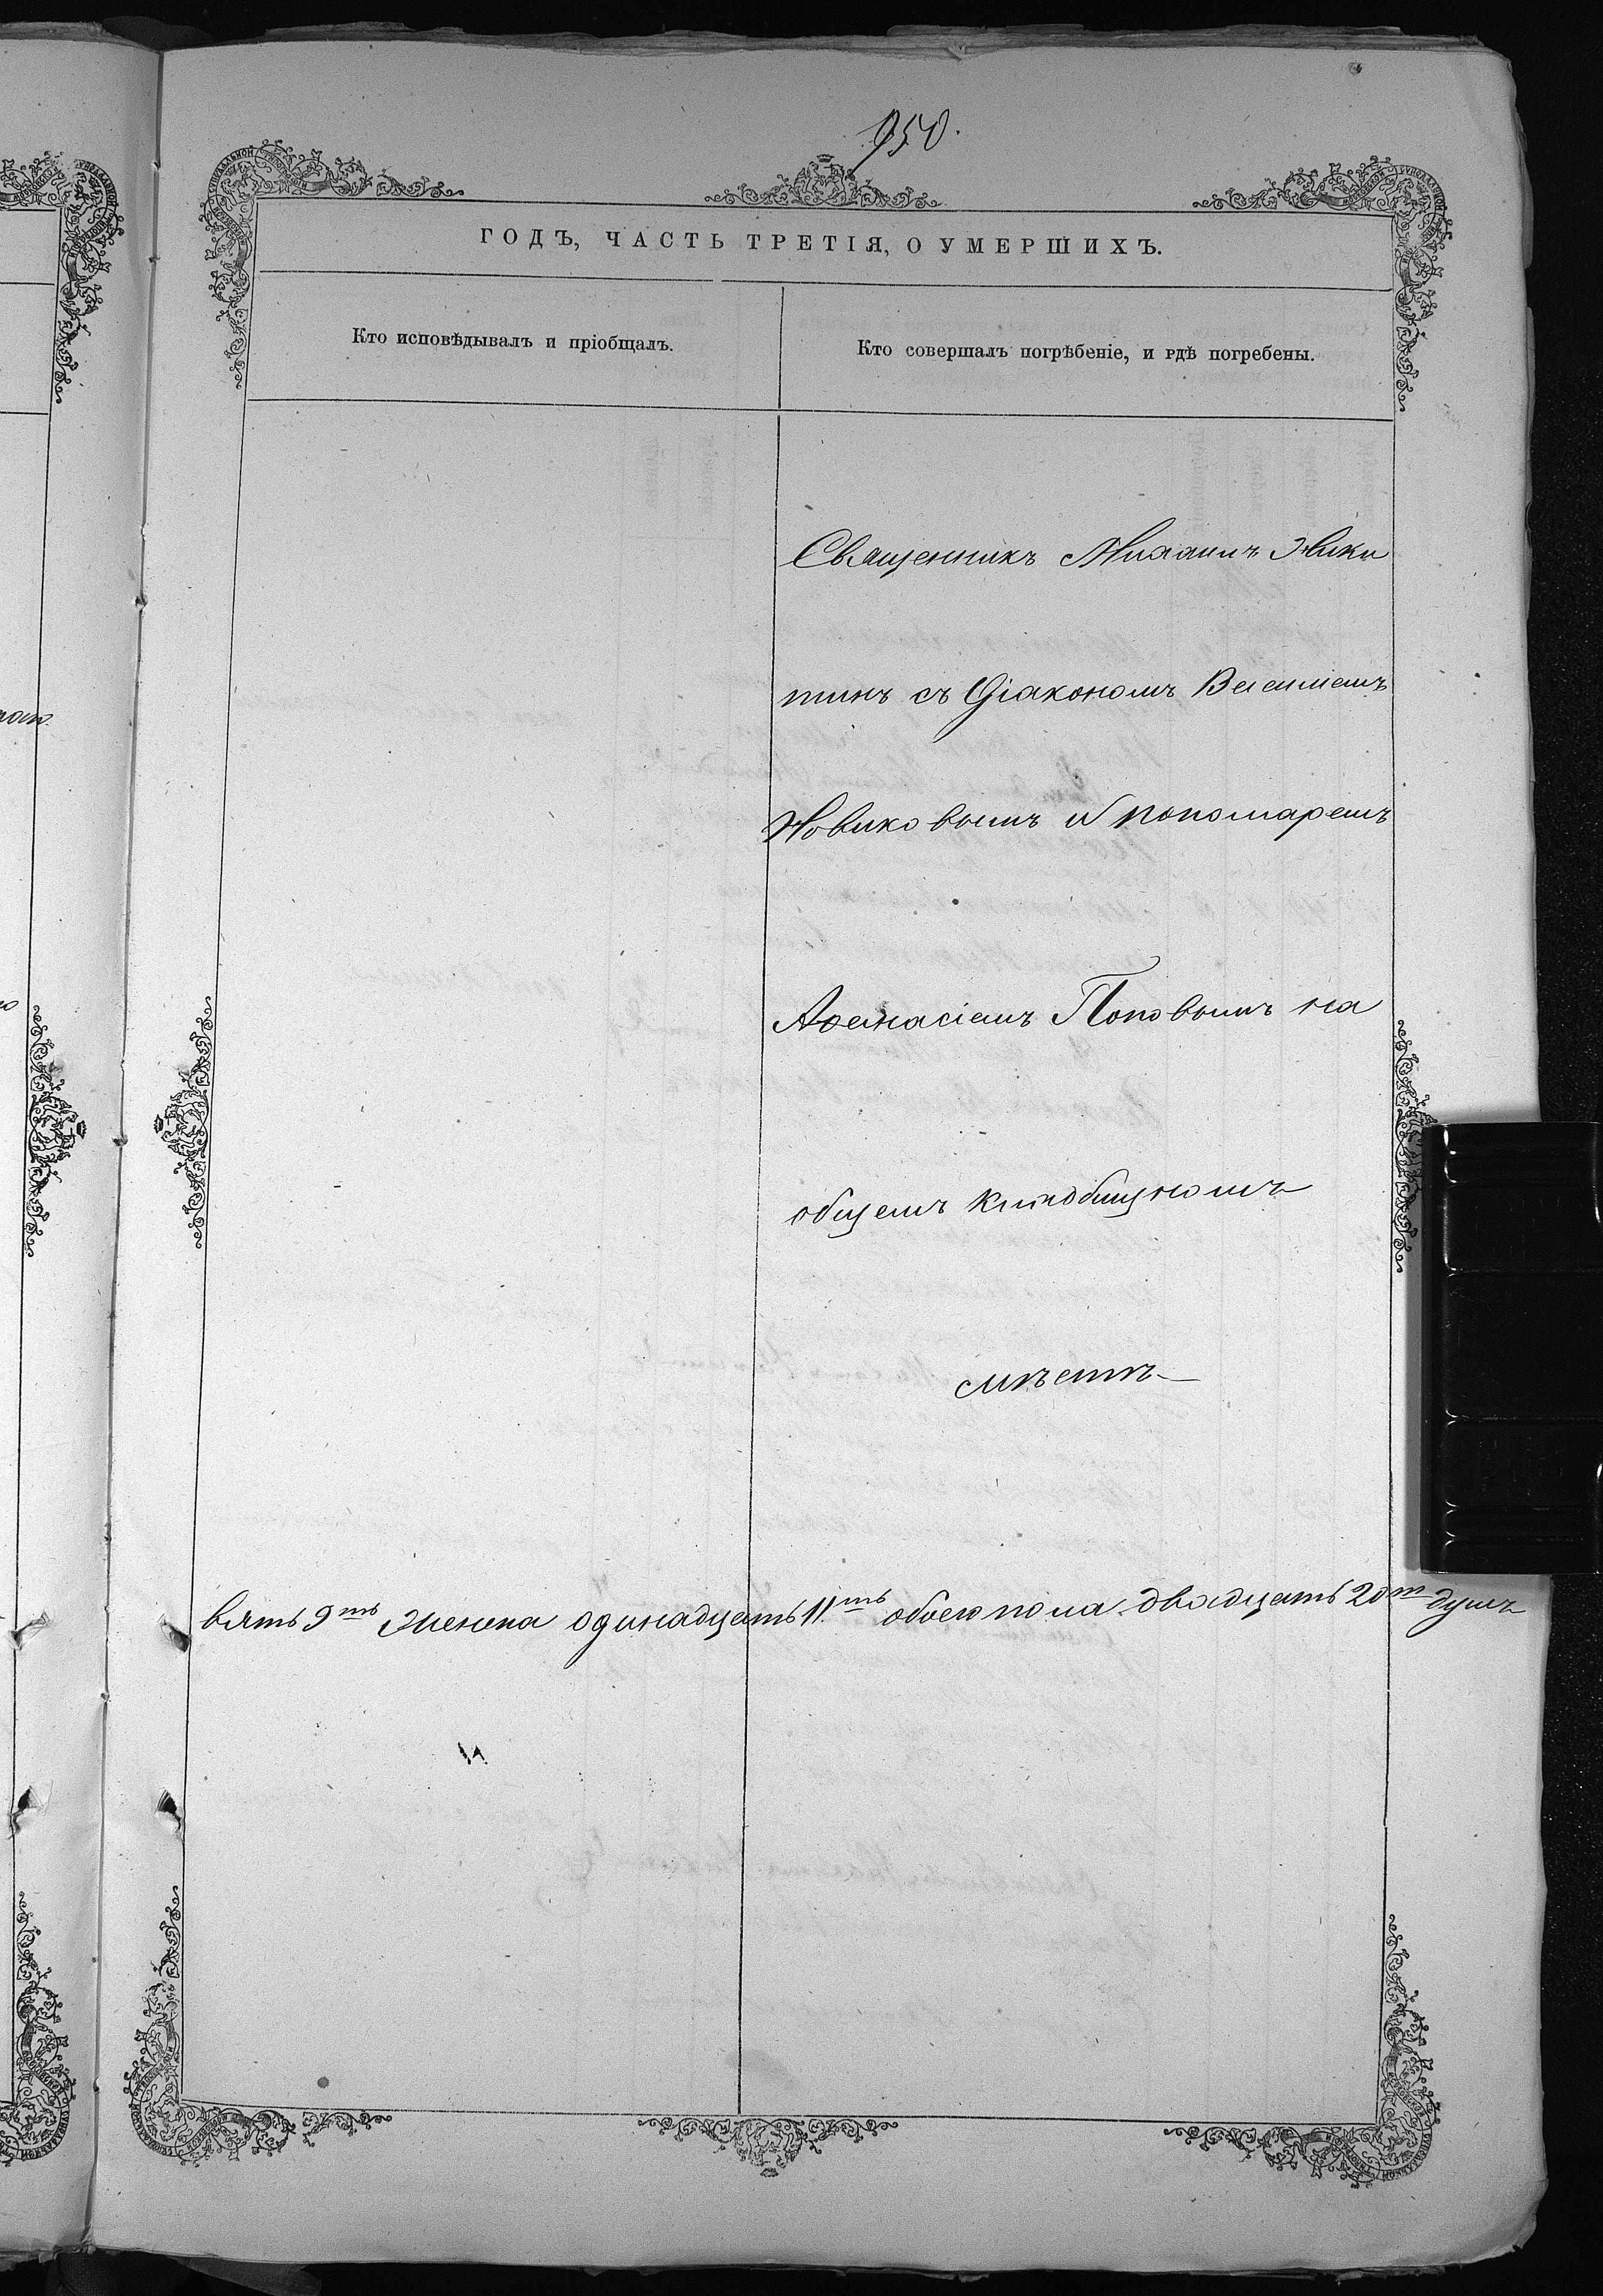 950.
ГОДЪ, ЧАСТЬ ТРЕТІЯ, О УМЕРШИХЪ.
Кто исповѣдывалъ и пріобщалъ.
Кто совершалъ погрѣбеніе, и гдѣ погребены.
Священникъ Михаилъ Ники
тинъ съ Діакономъ Василіемъ
Новиковымъ и пономаремъ
Аѳанасіемъ Поповымъ на
общемъ кладбищномъ
мѣстѣ
вять 9ть женска одинадцать 11.ть обоего пола двадцать 20ть душъ